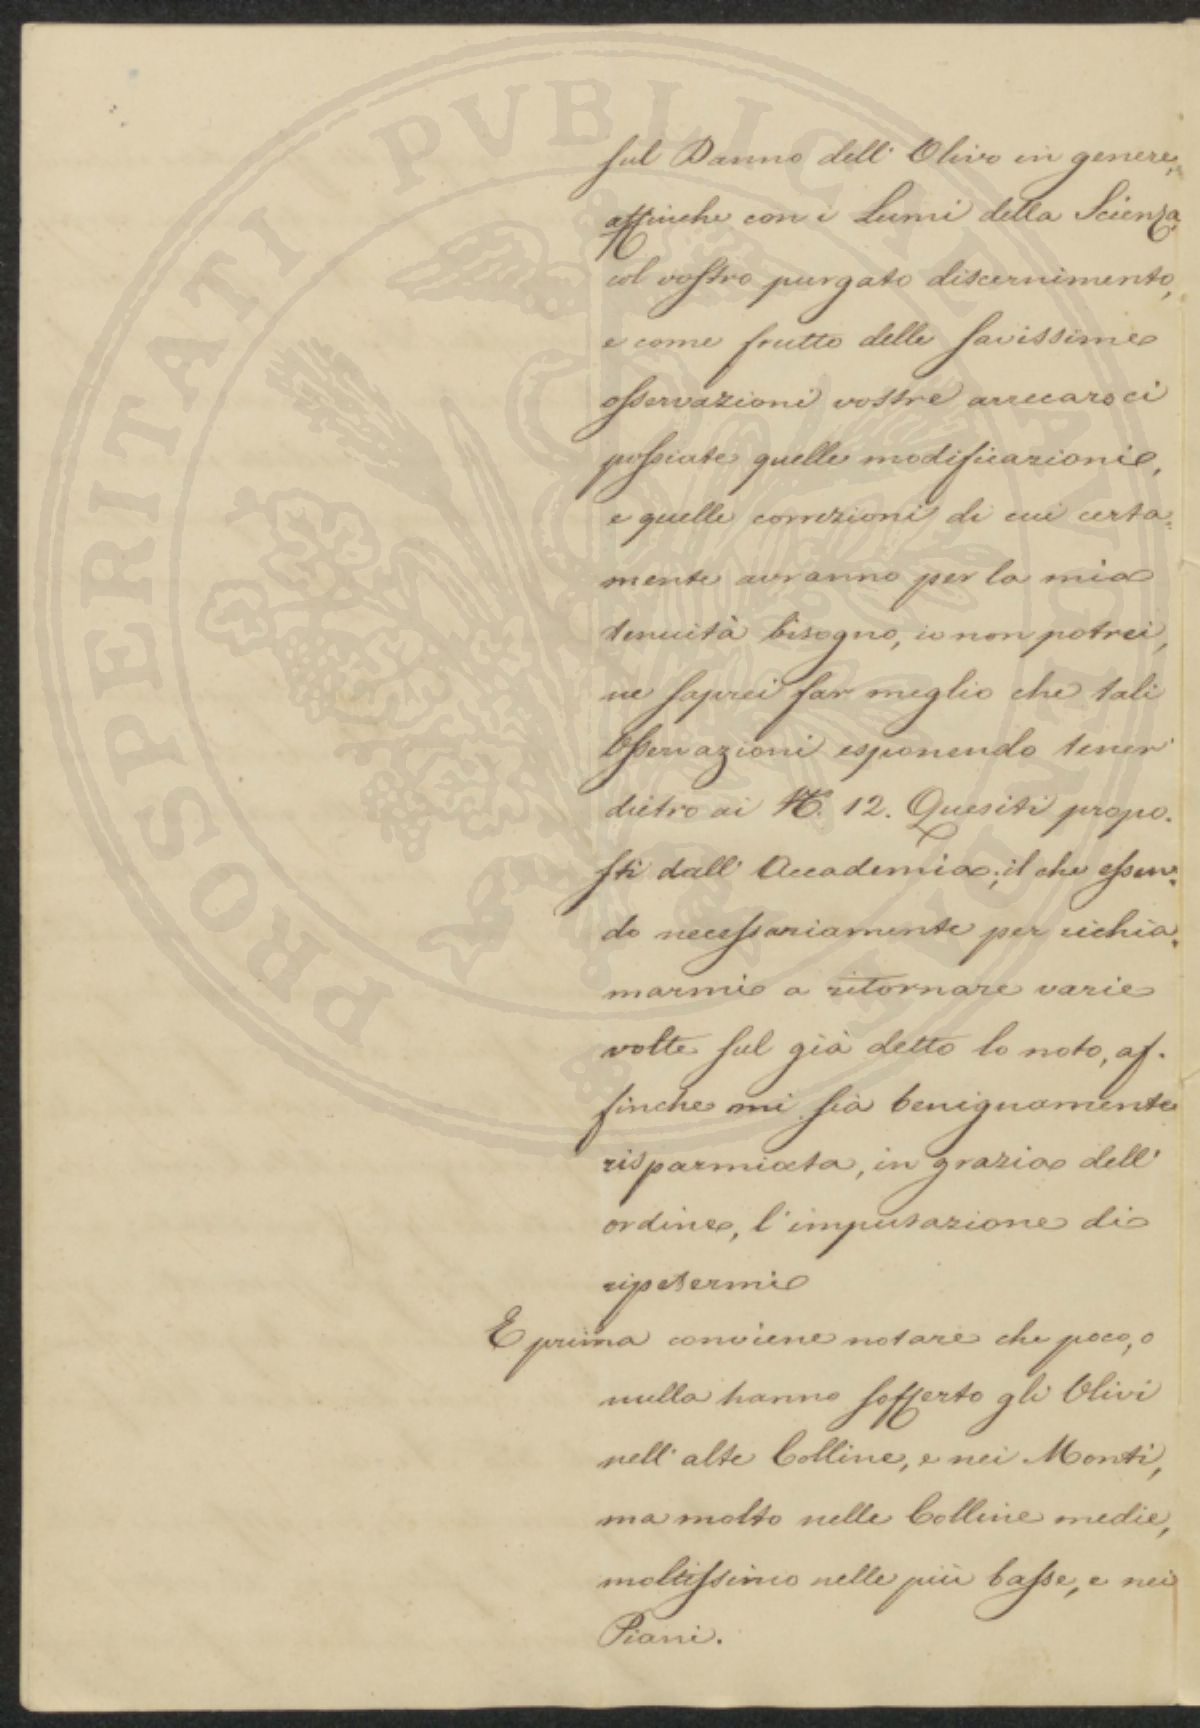 sul Danno dell' Olivo in genere,
affinche con i Lumi della Scienza,
col vostro purgato discernimento,
e come frutto delle savissime
osservazioni vostre arrecarci
possiate quelle modificazioni,
e quelle correzioni di cui certa-
mente avranno per la mia
tenuità bisogno, io non potrei,
ne saprei far meglio che tali
Osservazioni esponendo tener
dietro ai N. 12. Quesiti propo-
sti dall' Accademia; il che essen-
do necessariamente per richia-
marmi a ritornare varie
volte sul già detto lo noto, af-
finche mi sia benignamente
risparmiata, in grazia dell'
ordine, l'imputazione di
ripetermi
E prima conviene notare che poco, o
nulla hanno sofferto gli Olivi
nell' alte Colline, e nei Monti,
ma molto nelle Colline medie,
moltissimo nelle più basse, e nei
Piani.
PROSPERITATI PUBLICAE AUGENDAE